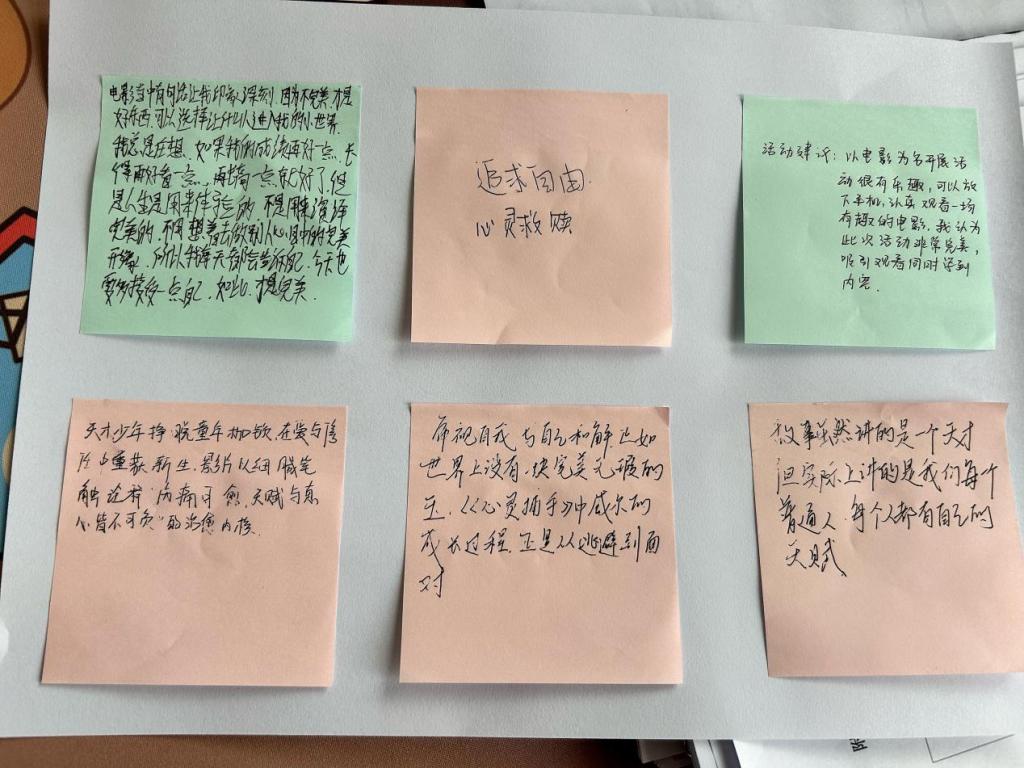 电影当中有句话让我印象深刻.因为不完美.才是
好东西,可以选择让什么人进入我的小世界.
我总是在想.如果我的成绩再好一点、长
得再好看一点,再高一点就好了,但
是人生是用来体验的.不是用来演绎
完美的.不用想着去做别人心目中的完美
所以我每天都会
要多接受一点自己,如此,才是完美.
追求自由.
心灵救赎
活动建议:以电影为名开展活
动很有乐趣,可以放
下手机,认真观看一场
有趣的电影,我认为
此次活动非常完美,
吸引观看同时学到
内容.
天才少年挣脱童年枷锁,在爱与陪
伴中重获新生.影片以细腻笔
触诠释"伤痛可愈,天赋与真
心皆不可负"的治愈内核.
审视自我 与自己和解 正如
世界上没有一块完美无瑕的
玉.《心灵捕手》中威尔的
成长过程.正是从逃避到面
对
故事虽然讲的是一个天才
但实际上讲的是我们每个
普通人,每个人都有自己的
天赋、